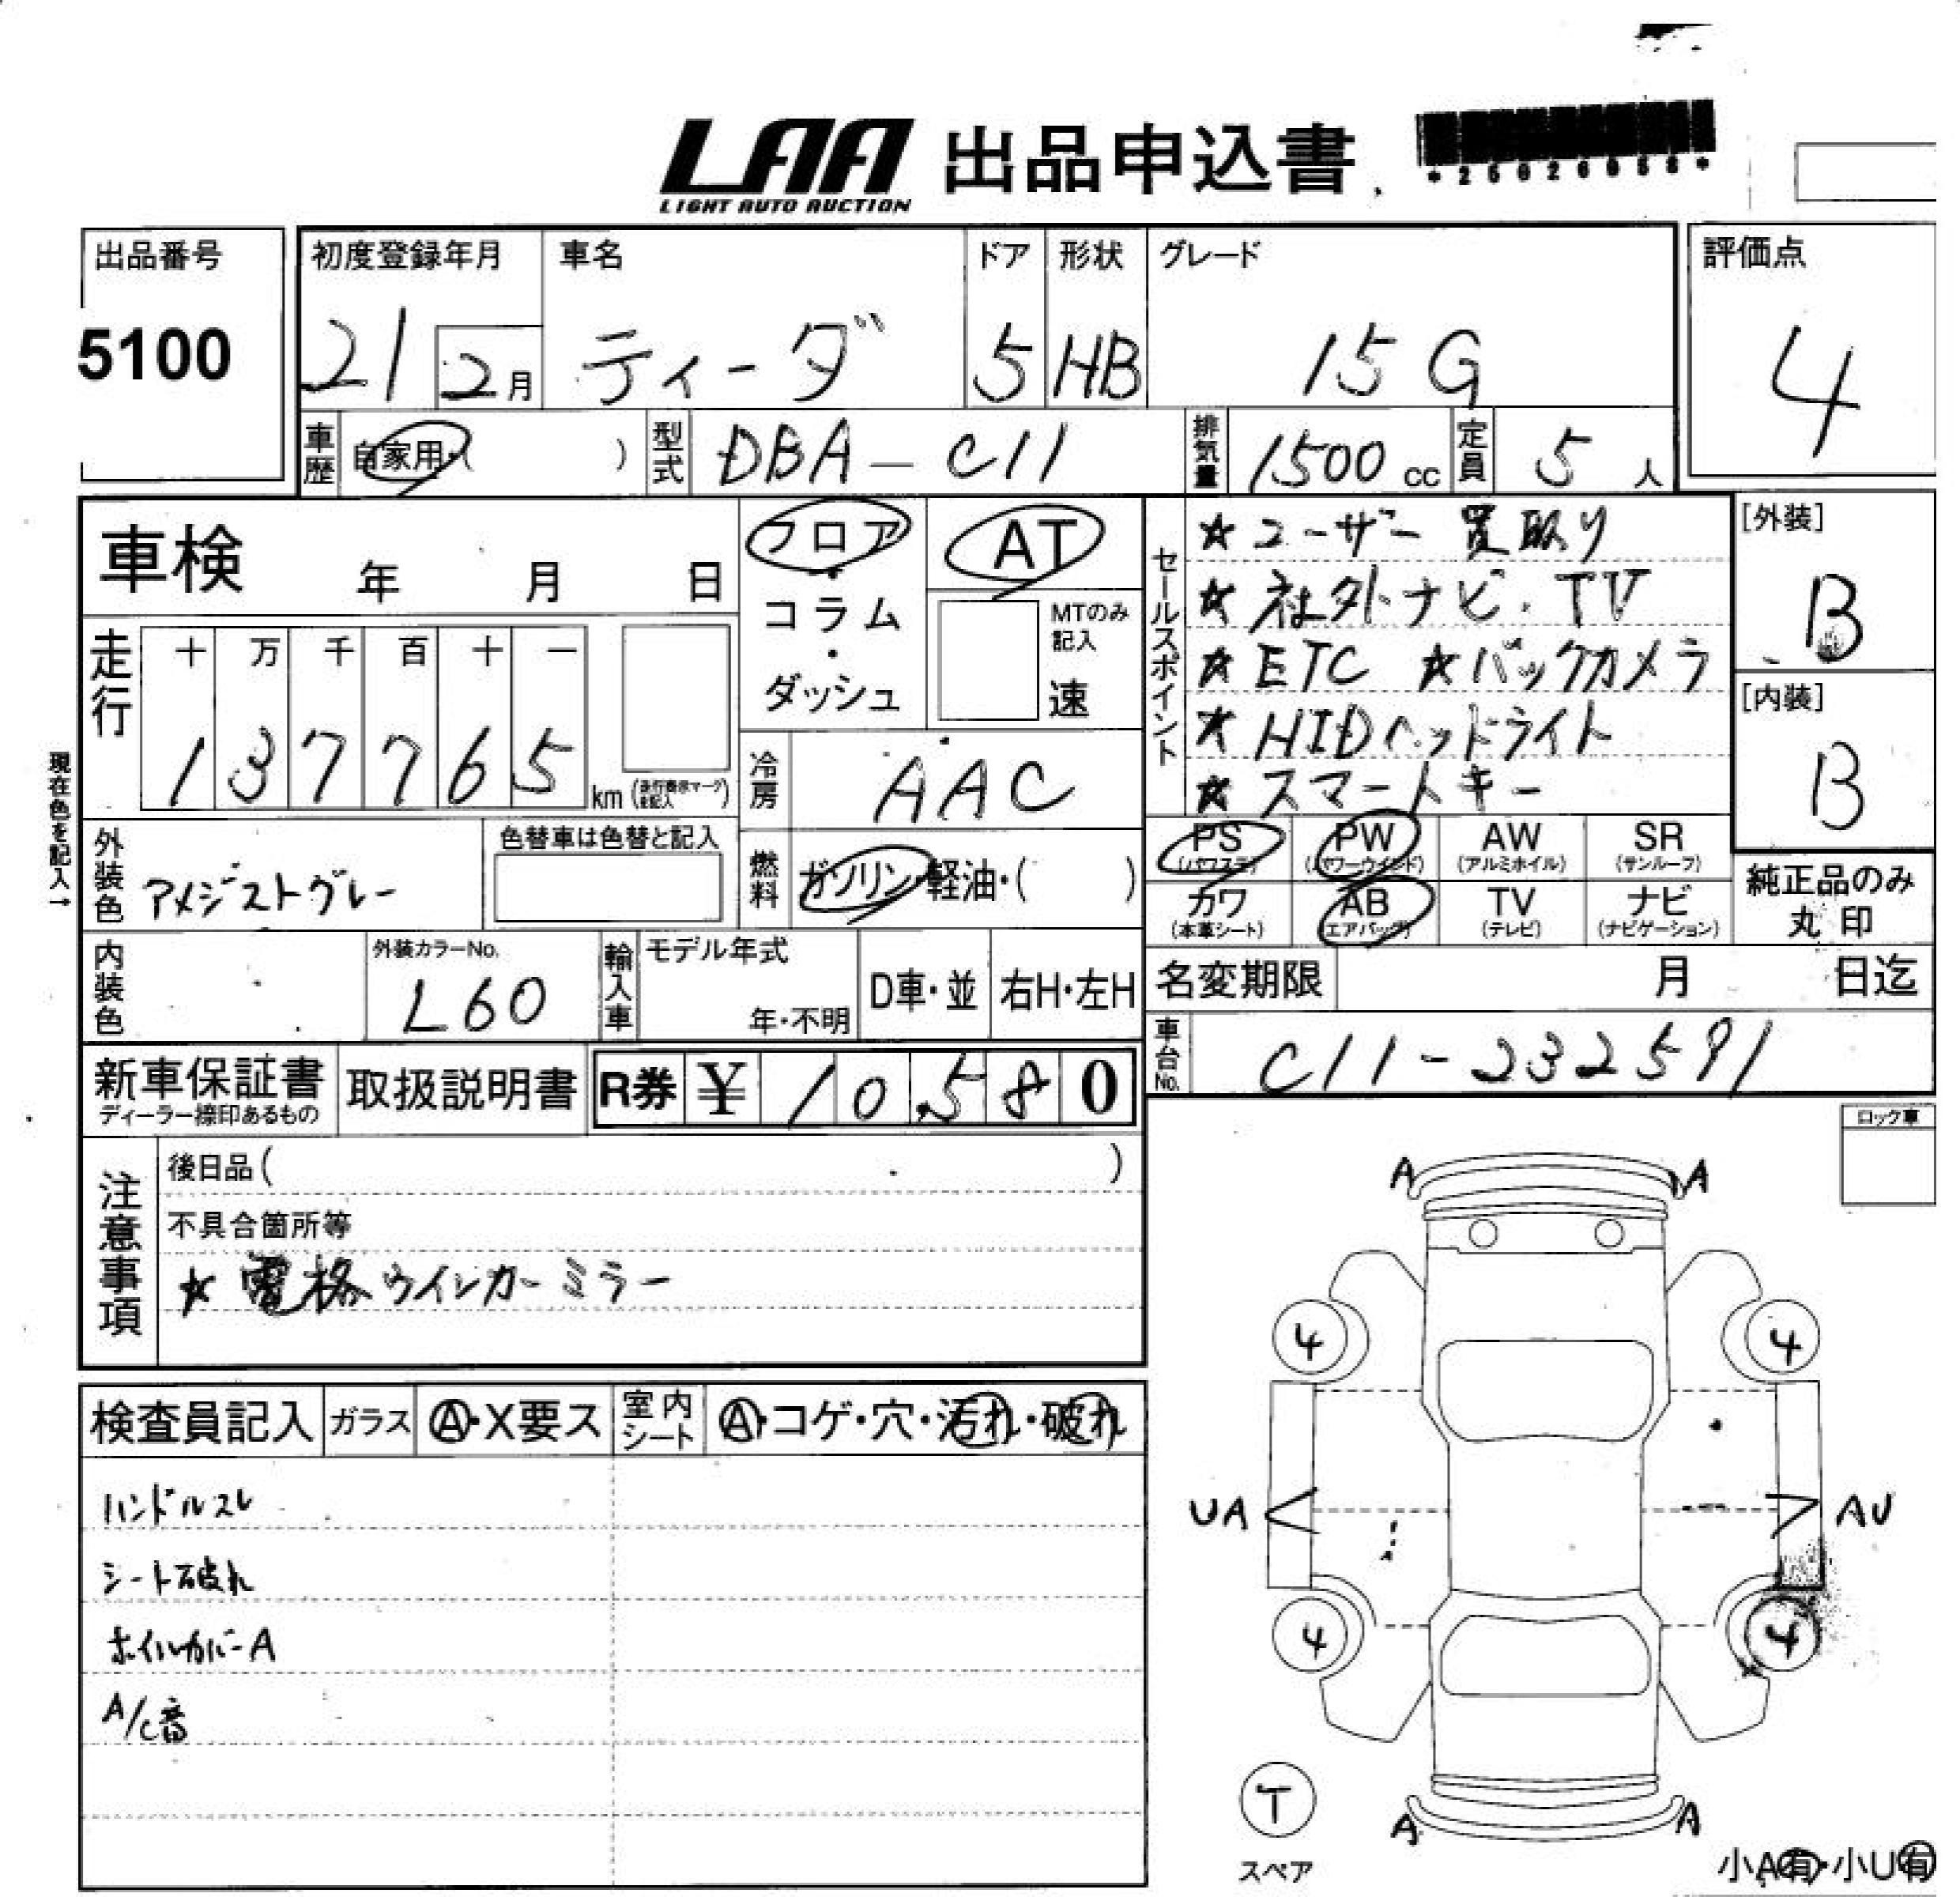 LAA 出品申込書
LIGHT AUTO AUCTION
出品番号
5100
初度登録年月
21 2月
車名
ティーダ
ドア
5
形状
HB
グレード
15G
評価点
4
車歴 自家用・( )
型式 DBA-C11
排気量 1500cc
定員 5人
車検 年 月 日
フロア・コラム・ダッシュ
AT
MTのみ記入
速
セールスポイント
★ユーザー買取り
★社外ナビ・TV
★ETC ★バックカメラ
★HIDヘッドライト
★スマートキー
[外装]
B
[内装]
B
走行
十 万 千 百 十 一
1 3 7 7 6 5 km
冷房 AAC
現在色を記入→
外装色 アメジストグレー
色替車は色替と記入
燃料 ガソリン・軽油・( )
PS (パワステ)
PW (パワーウインド)
AW (アルミホイル)
SR (サンルーフ)
カワ (本革シート)
AB (エアバッグ)
TV (テレビ)
ナビ (ナビゲーション)
純正品のみ
丸印
内装色
外装カラーNo.
L60
輸入車
モデル年式
年・不明
D車・並
右H・左H
名変期限 月 日迄
車台No. C11-232591
新車保証書
ディーラー捺印あるもの
取扱説明書
R券 ¥ 10580
ロック車
注意事項
後日品( )
不具合箇所等
★電格ウインカーミラー
検査員記入
ガラス A・X要ス
室内シート A・コゲ・穴・汚れ・破れ
ハンドルスレ
シート破れ
ホイルカバーA
A/C音
A A
4 4
UA AU
4 4
T
スペア
A A
小A有・小U有